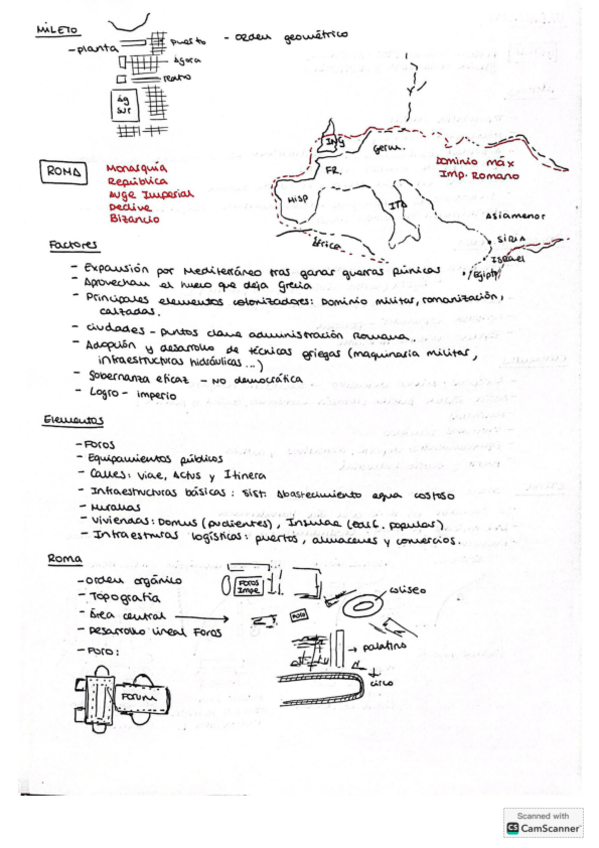 MILETO
- planta
puerto
- orden geométrico
ágora
teatro
ág
sur
ROMA
Monarquía
República
Auge Imperial
Declive
Bizancio
ING
Germ.
FR.
Hisp
ITA
África
Dominio máx
Imp. Romano
Asiamenor
SIRIA
ISrael
Egipto
Factores
- Expansión por Mediterráneo tras ganar guerras púnicas
- Aprovechan el hueco que deja Grecia
- Principales elementos colonizadores: Dominio militar, romanización,
calzadas.
- ciudades - puntos clave administración Romana.
- Adopción y desarrollo de técnicas griegas (maquinaria militar,
infraestructuras hidráulicas...)
- Gobernanza eficaz - No democrática
- Logro - imperio
Elementos
- Foros
- Equipamientos públicos
- Calles: Viae, Actus y Itinera
- Infraestructuras básicas: Sist. Abastecimiento agua costoso
- Murallas
- Viviendas: Domus (pudientes), Insulae (edif. popular)
- Infraestruras logísticas: puertos, almacenes y comercios.
Roma
- orden orgánico
- Topografía
- Área central
- Desarrollo lineal Foros
- Foro:
Foros
Impe
Foro
coliseo
palatino
circo
Forum
Scanned with
CS CamScanner